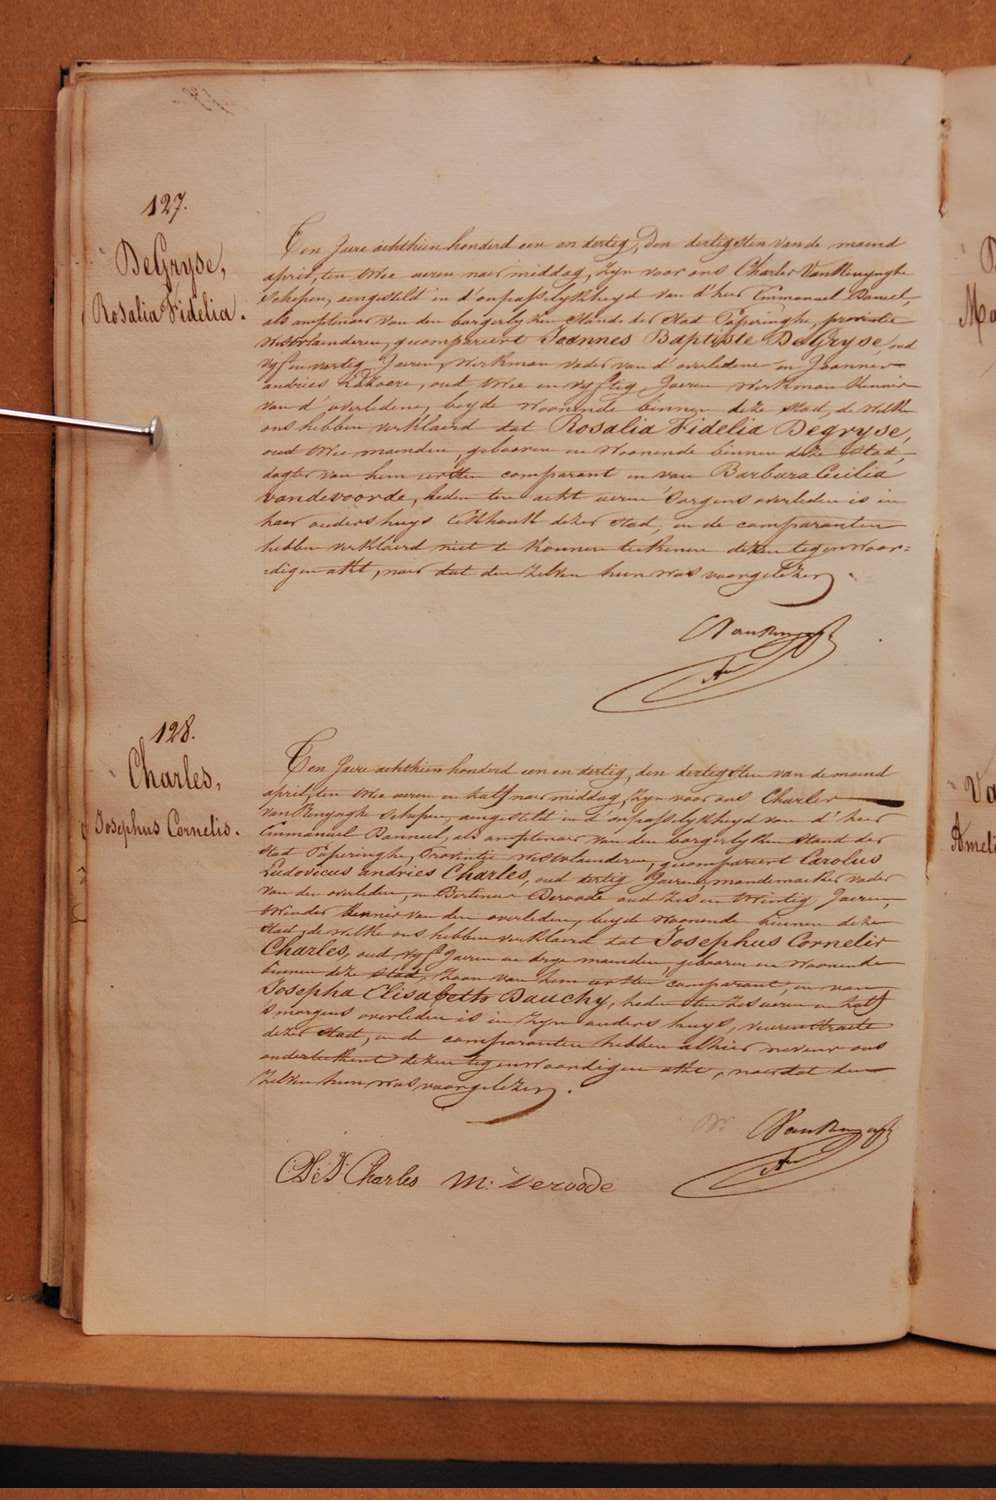 127.
DeGryse,
Rosalia Fidelia.
Ten Jare achthien honderd een en dertig, den dertigsten van de maend
april, ten twee uren naer middag, zyn voor ons Charles VanRenynghe
Schepen, aengesteld in d'onpasselykheyd van d'heer Emmanuel Banuel,
als amptenaer van den borgerlyken Stand der Stad Poperinghe, provintie
westvlaenderen, gecompareert Joannes Baptiste DeGryse, oud
vyf en veertig Jaeren, werkman vader van d'overledene en Joannes
andries, oud twee en vyftig Jaeren werkman Kennis
van d'overledene, beyde woonende binnen deze stad, de welke
ons hebben verklaerd dat Rosalia Fidelia Degryse,
oud twee maenden, gebooren en woonende binnen deze stad,
dogter van hem eersten comparant en van Barbara Cecilia
vandevoorde, heden ten acht uren 's morgens overleden is in
haer ouders huys dezer stad, en de comparanten
hebben verklaerd niet te konnen teekenen dezen tegenwoor=
digen akt, naer dat den zelven hun was voorgelezen.
128.
Charles,
Josephus Cornelis.
Ten Jare achthien honderd een en dertig, den dertigsten van de maend
april, ten twee uren en half naer middag, zyn voor ons Charles
VanRenynghe Schepen, aengesteld in d'onpasselykheyd van d'heer
Emmanuel Banneel, als amptenaer van den borgerlyken stand der
stad Poperinghe, Provintie westvlaenderen, gecompareert Carolus
Ludovicus andries Charles, oud dertig Jaeren, mandemaeker vader
van den overleden, en Deroode oud zes en twintig Jaeren,
Kennis van den overleden, beyde woonende binnen deze
stad, de welke ons hebben verklaerd dat Josephus Cornelis
Charles, oud vyf Jaeren en dry maenden, gebooren en woonende
binnen deze stad, zoon van hem eersten comparant, en van
Josepha Elisabeth Dauchy, heden ten zes uren en half
's morgens overleden is in zyn ouders huys, veurenstraete
dezer stad, en de comparanten hebben alhier nevens ons
onderteekent dezen tegenwoordigen akt, naer dat den
zelven hun was voorgelezen.
Charles M: Deroode